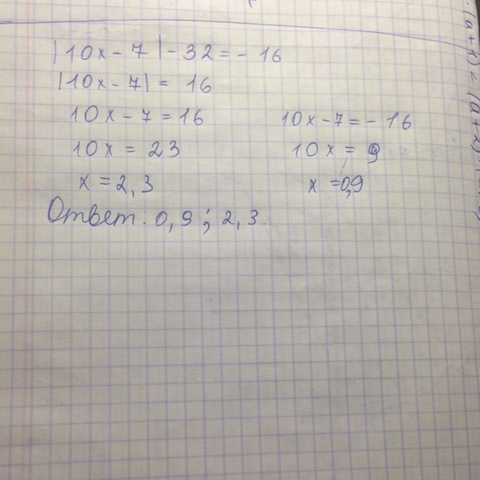 |10x - 7| - 32 = - 16
|10x - 7| = 16
10x - 7 = 16
10x = 23
x = 2,3
10x - 7 = - 16
10x = 9
x = 0,9
Ответ: 0,9 ; 2,3.